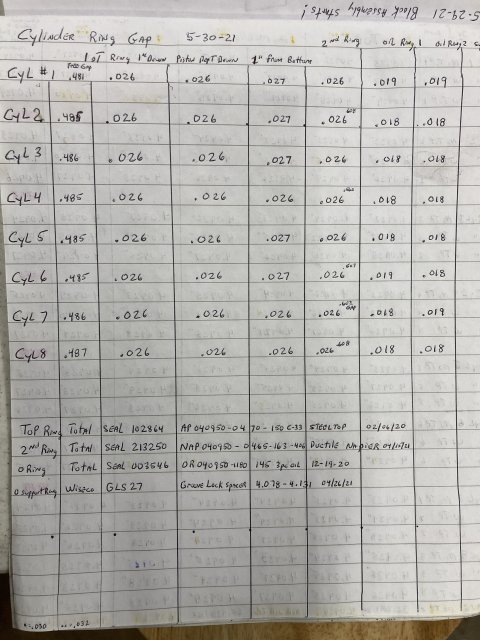 5-29-21 Block Assembly starts!
Cylinder Ring Gap 5-30-21 2nd Ring oil Ring 1 oil Ring 2
Free Gap 1st Ring 1" Down Piston Dept Down 1" From Bottom
Cyl #1 .481 .026 .026 .027 .026 .019 .019
Cyl 2 .485 .026 .026 .027 .026 .018 .018
Cyl 3 .486 .026 .026 .027 .026 .018 .018
Cyl 4 .485 .026 .026 .026 .026 .018 .018
Cyl 5 .485 .026 .026 .027 .026 .018 .018
Cyl 6 .485 .026 .026 .027 .026 .019 .018
Cyl 7 .486 .026 .026 .026 .026 .018 .019
Cyl 8 .487 .026 .026 .026 .026 .608 .018 .018
Top Ring Total SEAL 102864 AP 040950-04 70-150 C-33 STEELTOP 02/06/20
2nd Ring Total SEAL 213250 NAP040950-0465-163-406 Ductile NAPIER 04/10/21
O Ring Total SEAL 003546 OR040950-1180 145 3pc oil 12-19-20
O support Ring Wiseco GLS27 Groove Lock Spacer 4.078-4.131 04/26/21
.=.030 ..=.032